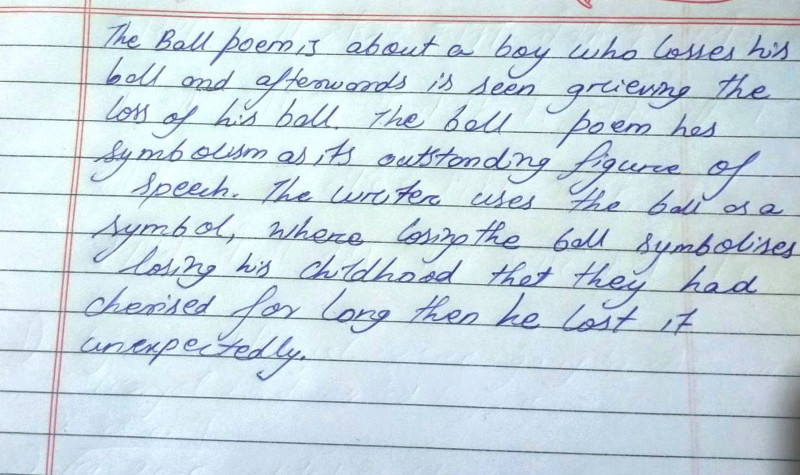 The Ball poem is about a boy who losses his
ball and afterwards is seen grieving the
loss of his ball. The ball poem has
symbolism as its outstanding figure of
speech. The writer uses the ball as a
symbol, where losing the ball symbolises
losing his childhood that they had
cherised for long then he lost it
unexpectedly.